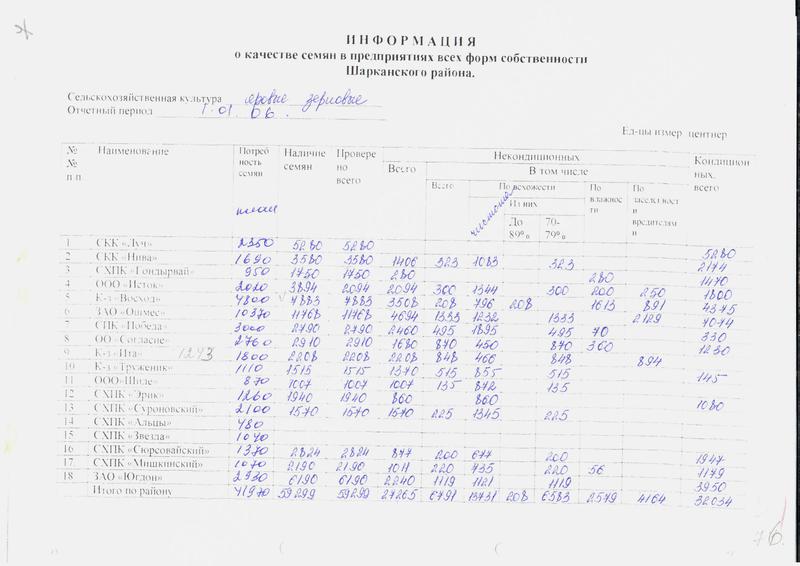 И Н Ф О Р М А Ц И Я
о качестве семян в предприятиях всех форм собственности
Шарканского района.
Сельскохозяйственная культура яровые зерновые
Отчетный период 1.01.06.
Ед-цы измер центнер
№ № п.п. Наименование Потреб ность семян план Наличие семян Провере но всего Некондиционных Кондицион ных, всего
Всего В том числе
Всего По всхожести По влажнос ти По заселенност и вредителям и
чистота Из них
До 89% 70-79%
1 СКК «Луч» 2350 5280 5280 5280
2 СКК «Нива» 1690 3580 3580 1406 323 1083 323 2174
3 СХПК «Гондырвай» 950 1750 1750 280 280 1470
4 ООО «Исток» 2020 3894 2094 2094 300 1344 300 200 250 1800
5 К-з «Восход» 4800 7883 7883 3508 208 796 208 1613 891 4375
6 ЗАО «Ошмес» 10370 11768 11768 4694 1333 1232 1333 2129 7074
7 СПК «Победа» 3000 2790 2790 2460 495 1895 495 70 330
8 ОО «Согласие» 2760 2910 2910 1680 870 450 870 360 1230
9 К-з «Ита» 1243 1800 2208 2208 2208 848 466 848 894
10 К-з «Труженик» 1110 1515 1515 1370 515 855 515 145
11 ООО«Шиле» 870 1007 1007 1007 135 872 135
12 СХПК «Эрик» 1260 1940 1940 860 860 1080
13 СХПК «Суроновский» 2100 1570 1570 1570 225 1345 225
14 СХПК «Альцы» 480
15 СХПК «Звезда» 1040
16 СХПК «Сюрсовайский» 1370 2824 2824 877 200 677 200 1947
17 СХПК «Мишкинский» 1070 2190 2190 1011 220 735 220 56 1179
18 ЗАО «Югдон» 2930 6190 6190 2240 1119 1121 1119 3950
Итого по району 41970 59299 59299 27265 6791 13731 208 6583 2579 4164 32034
76.